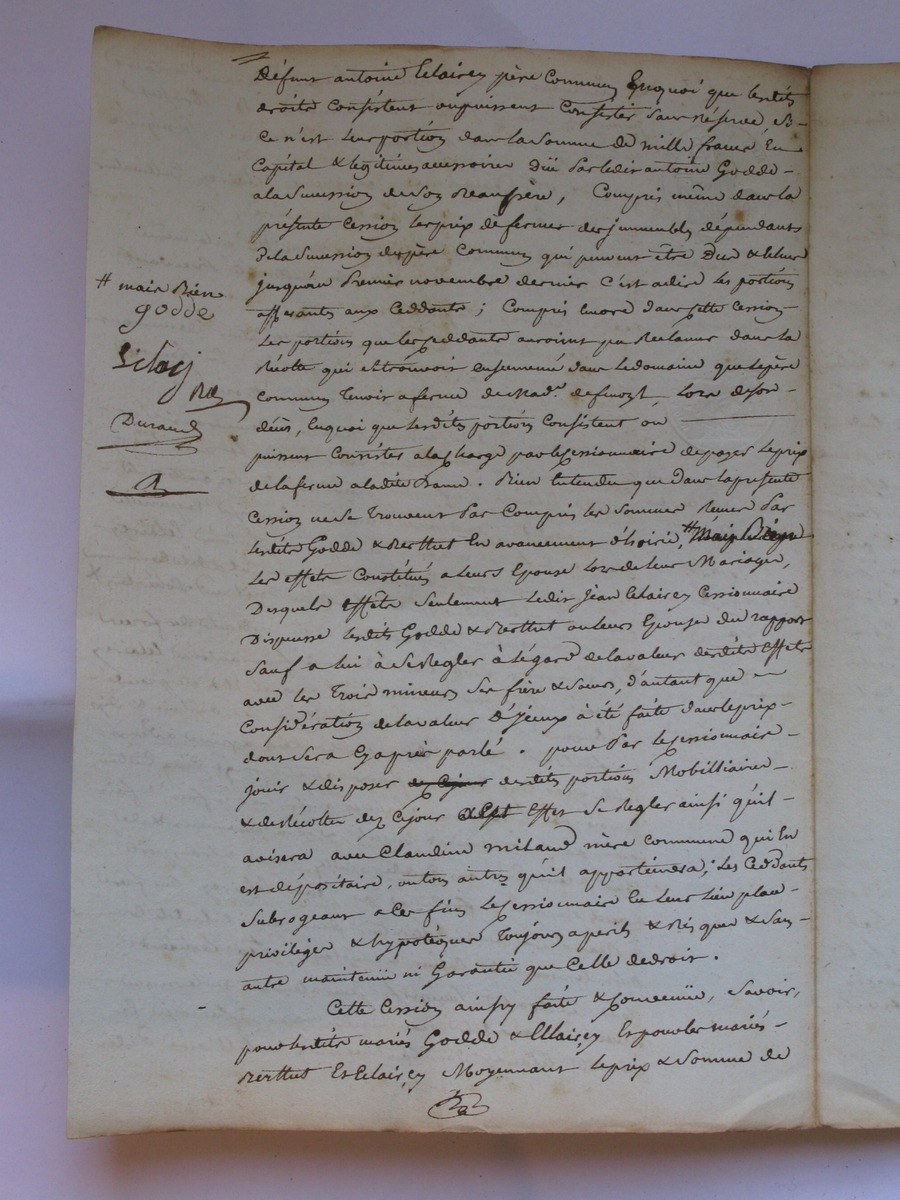 défunt antoine Eclaircy père Commun Enquoi que lesdits
droits Consistent ou puissent Consister sans Réserve, Si
Ce n'est leur portion dans la Somme de mille francs En
Capital & legitimes accessoires Düe Par ledit antoine Godde
a la Succession de Son Beaupère, Compris même dans la
présente Cession les prix de fermes des immeubles dépendants
De la Succession du père Commun qui peuvent être Dus & échus
jusqu'au Premier novembre dernier C'est adire les portions
afferantes aux Ceddants ; Compris Encore dans Cette Cession
Les portions que les Ceddants auroint pu Réclamer dans la
Récolte qui Se trouvoit ensemencé dans le domaine que le père
Commun Tenoit a ferme de Mad.e Lors de Son
décès, Enquoi que lesdits portions Consistent ou
puissent Consister a la Charge par le Cessionnaire de payer le prix
de la ferme a ladite Dame. Bien Entendu que Dans la présente
Cession ne Se Trouvent Pas Compris les Sommes Reçues Par
lesdits Godde & Berthet En avancement d'hoirie, # mais Bien
Les effets Constitués a leurs Epouse Lors de leur Mariages,
Desquels effets Seulement ledit Jean Eclaircy Cessionnaire
Dispense lesdits Godde & Berthet ou leurs Epouse du rapport
Sauf a lui à Se Regler à l'égard de la valeur desdits effets
avec les Trois mineurs Ses frère & Sœurs, d'autant que
Considération de la valeur D'iceux à été faite dans le prix
dont Sera Cy après parlé. pour Par le Cessionnaire
jouir & disposer desdits portions Mobilliaires
& de Récoltes dez Cejour effet Se Regler ainsi qu'il
avisera avec Claudine milaud mère commune qui En
est dépositaire, ou tous autres qu'il appartiendra ; Les Ceddants
Subrogeant a Ces fins le Cessionnaire En leur Lieu place
privilèges & hypotèques Toujours a perils & Risques & Sans
autre maintenüe ni Garantie que Celle de droit.
Cette Cession ainsy faite & Convenüe, Savoir,
pour lesdits mariés Godde & Eclaircy Et pour les mariés
Berthet Et Eclaircy Moyennant le prix & Somme de
# mais Bien
godde
Durand